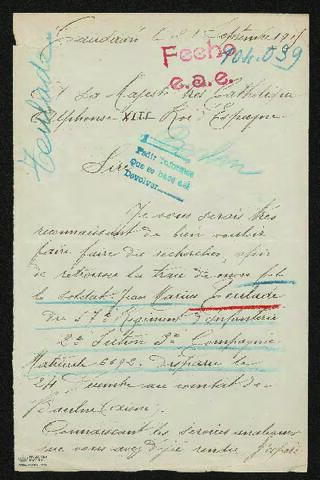 Caudéran le 21 Septembre 1917
Fecho
e.a.e.
404.039
Teulade
A Sa Majesté très Catholique
Alphonse XIII Roi d'Espagne
Sire
Pedir Informes
Que se hace así
Devolver
Je vous serais très
reconnaissant de bien vouloir
faire faire des recherches, afin
de retrouver la trace de mon fils
le soldat Jean Marius Teulade
du 57e Régiment d'infanterie
2e Section 3e Compagnie
Matricule 6692. disparu le
24 au combat de
Connaissant les services analogues
que vous avez déjà rendu j'espère